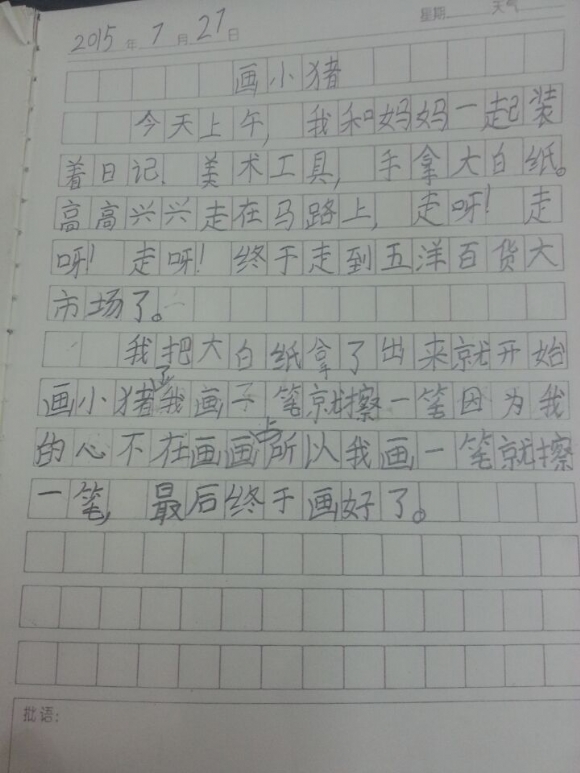 星期 天气
2015年7月27日
画小猪
今天上午，我和妈妈一起装
着日记、美术工具，手拿大白纸。
高高兴兴走在马路上，走呀！走
呀！走呀！终于走到五洋百货大
市场了。
我把大白纸拿了出来就开始
画小猪了我画一笔就擦一笔因为我
的心不在画画上所以我画一笔就擦
一笔，最后终于画好了。
批语：